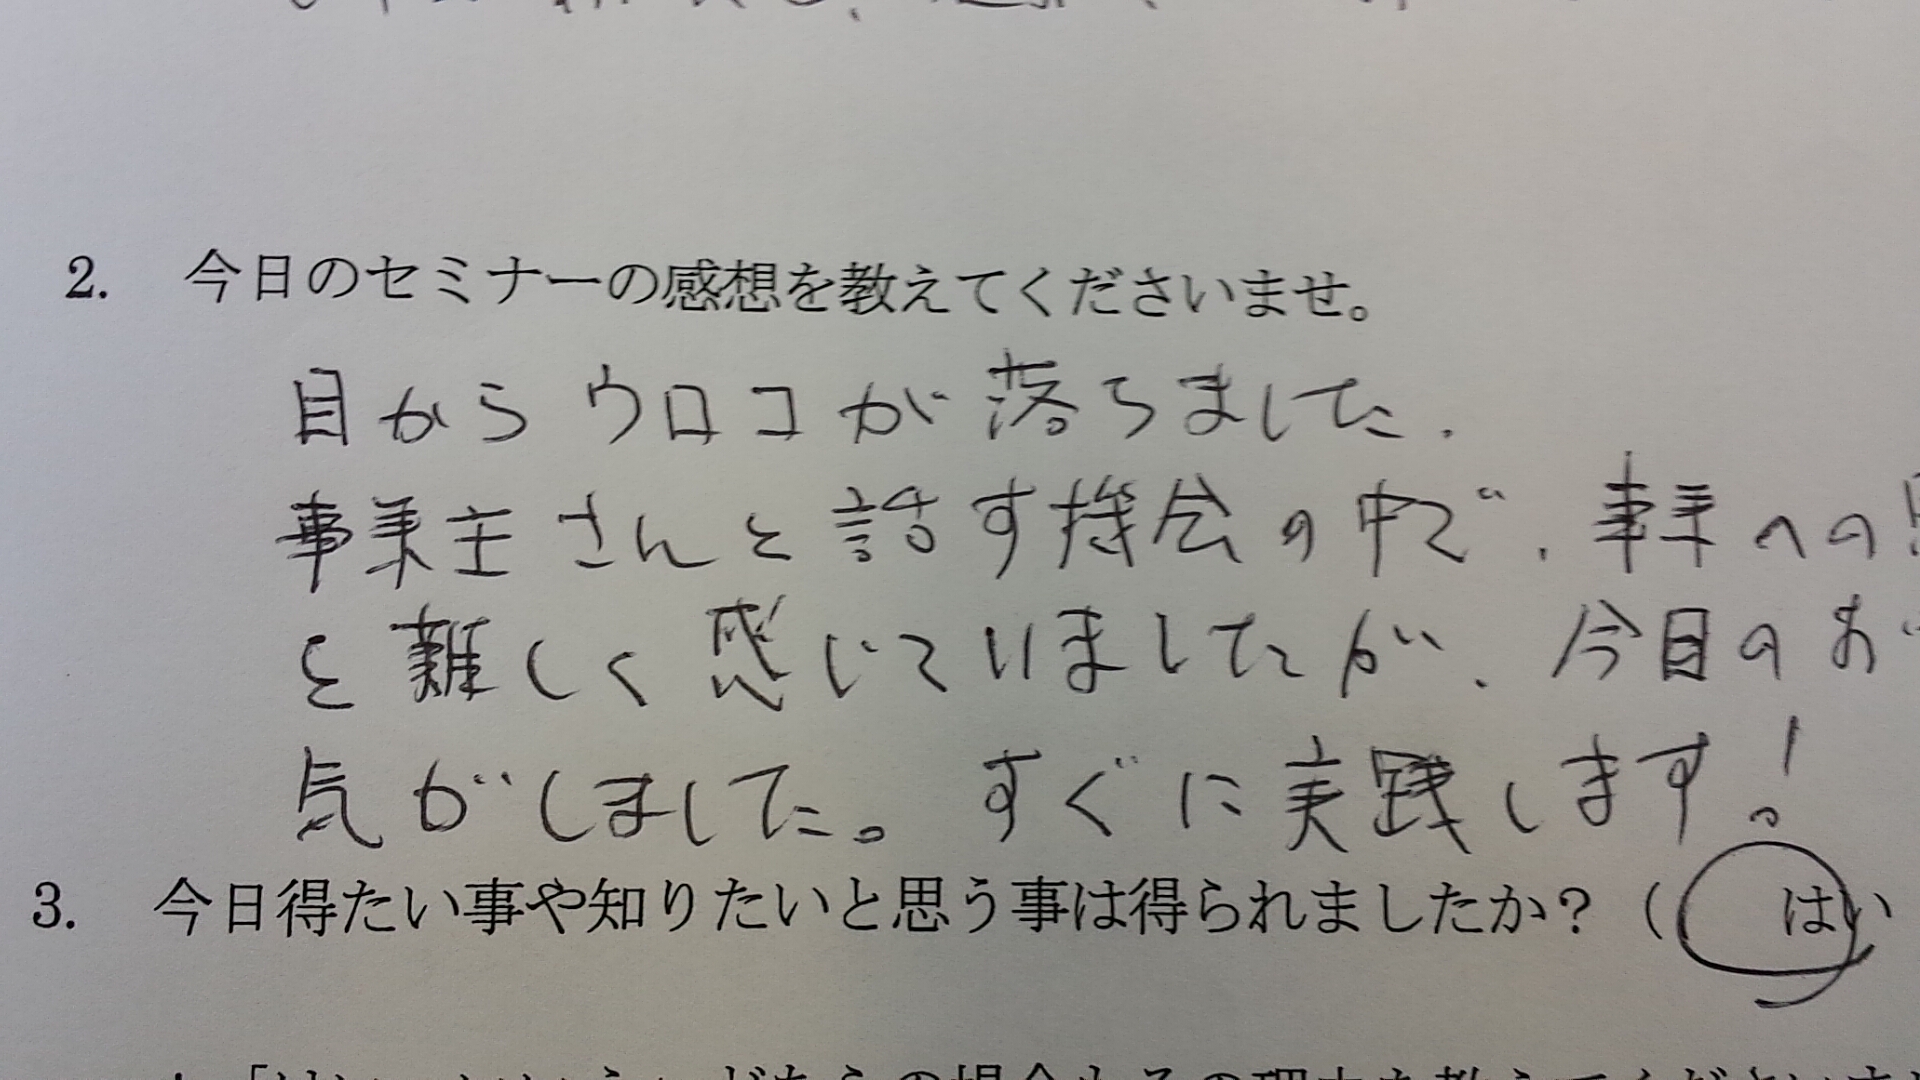 2. 今日のセミナーの感想を教えてくださいませ。
目からウロコが落ちました.
事業主さんと話す機会の中で、事業への
と難しく感じていましたが、今日のお
気がしました。すぐに実践します!
3. 今日得たい事や知りたいと思う事は得られましたか?( はい